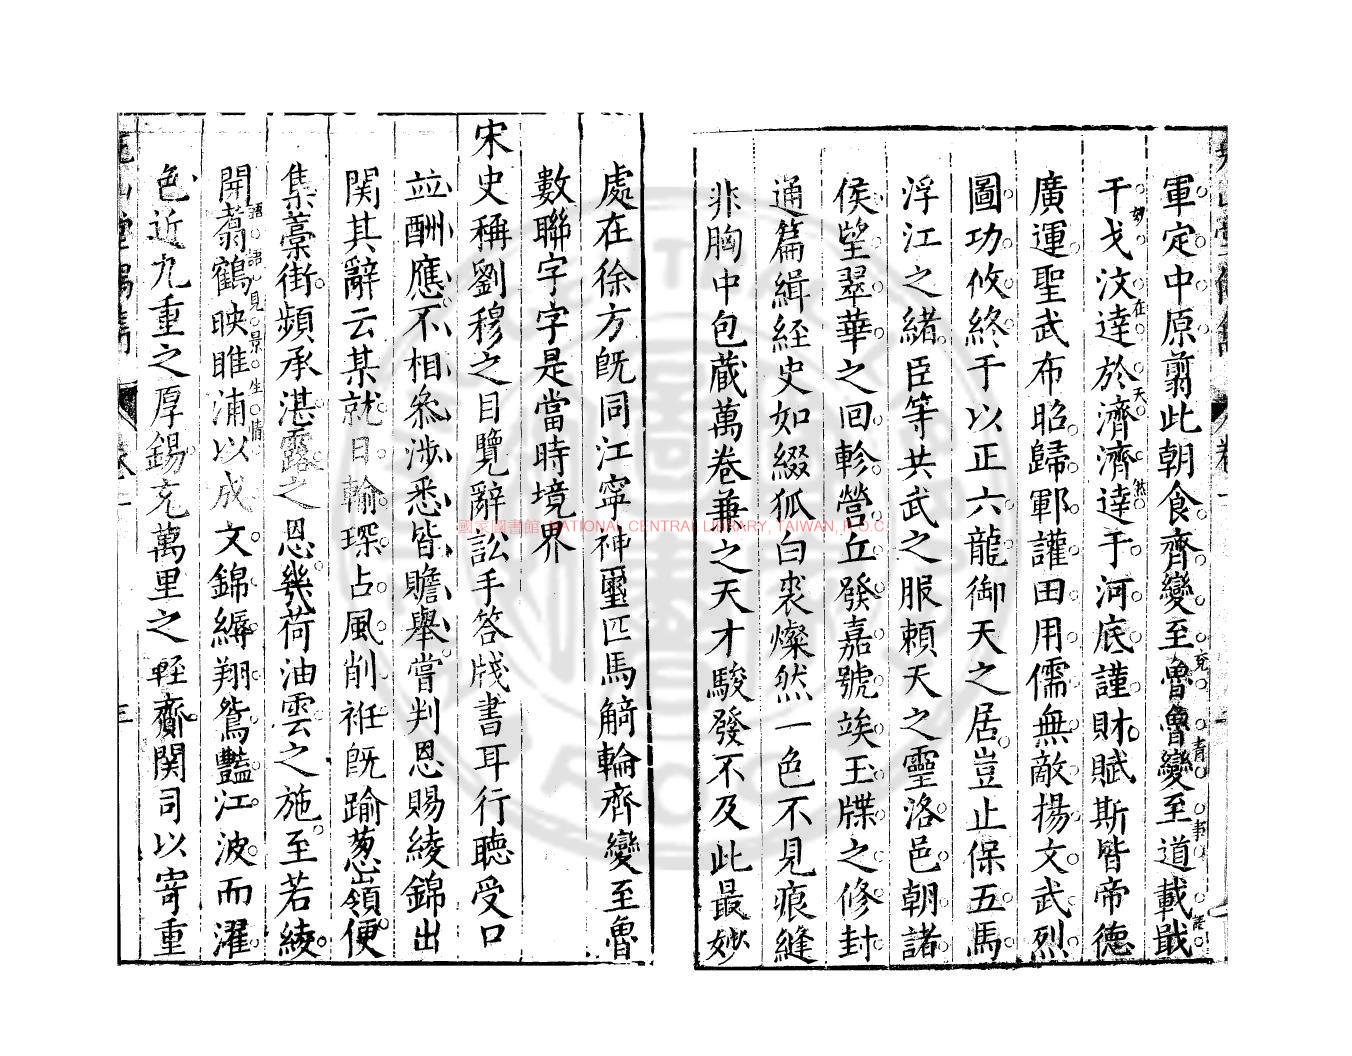 軍定中原翦此朝食齊變至魯魯變至道載戢
干戈汶達於濟濟達于河底謹財賦斯皆帝德
廣運聖武布昭歸鄆讙田用儒無敵揚文武烈
圖功攸終于以正六龍御天之居豈止保五馬
浮江之緒臣等共武之服頼天之靈洛邑朝諸
侯望翠華之回軫營丘發嘉號竢玉牒之修封
通篇緝経史如綴狐白裘燦然一色不見痕縫
非胸中包蔵萬卷兼之天才駿發不及此最妙
處在徐方既同江寜神璽匹馬觭輪齊變至魯
數聯字字是當時境界
宋史稱劉穆之目覽辭訟手答牋書耳行聴受口
並酬應不相叅涉悉皆贍舉嘗判恩賜綾錦出
関其辭云某就日輸琛占風削衽既踰葱嶺便
集藁街頻承湛露之恩幾荷油雲之施至若綾
開翥鶴映睢浦以成文錦縟翔鴛豔江波而濯
色近九重之厚錫充萬里之輕齎関司以寄重
妙在天然
語語見景生情
國家圖書館 NATIONAL CENTRAL LIBRARY, TAIWAN, R.O.C.